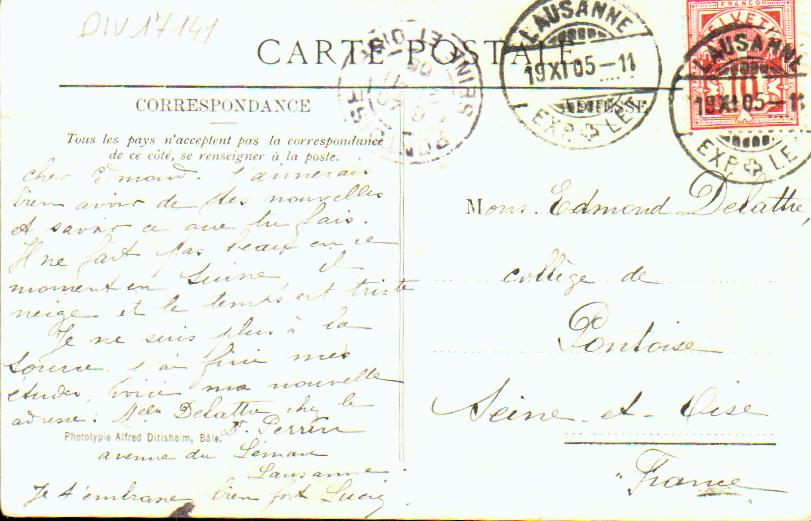 DIV 17141
CARTE POSTALE
FRANCO
HELVETIA
10
LAUSANNE
19 XI 05 – 11
EXP. LET
LAUSANNE
19 XI 05 – 11
EXP. LE
CORRESPONDANCE
ADRESSE
Tous les pays n'acceptent pas la correspondance
de ce côté, se renseigner à la poste.
cher Edmond. j'aimerais
bien avoir de tes nouvelles
et savoir ce que tu fais.
Il ne fait pas beau en ce
moment en Suisse il
neige et le temps est triste
Je ne suis plus à la
Source. j'ai fini mes
études, voici ma nouvelle
adresse: Melle Delattre chez le
Dr Perrin
Phototypie Alfred Ditisheim, Bâle.
avenue du Léman
Lausanne
Je t'embrasse bien fort Lucie
Mons. Edmond Delattre,
collège de
Pontoise
Seine-et-Oise
France